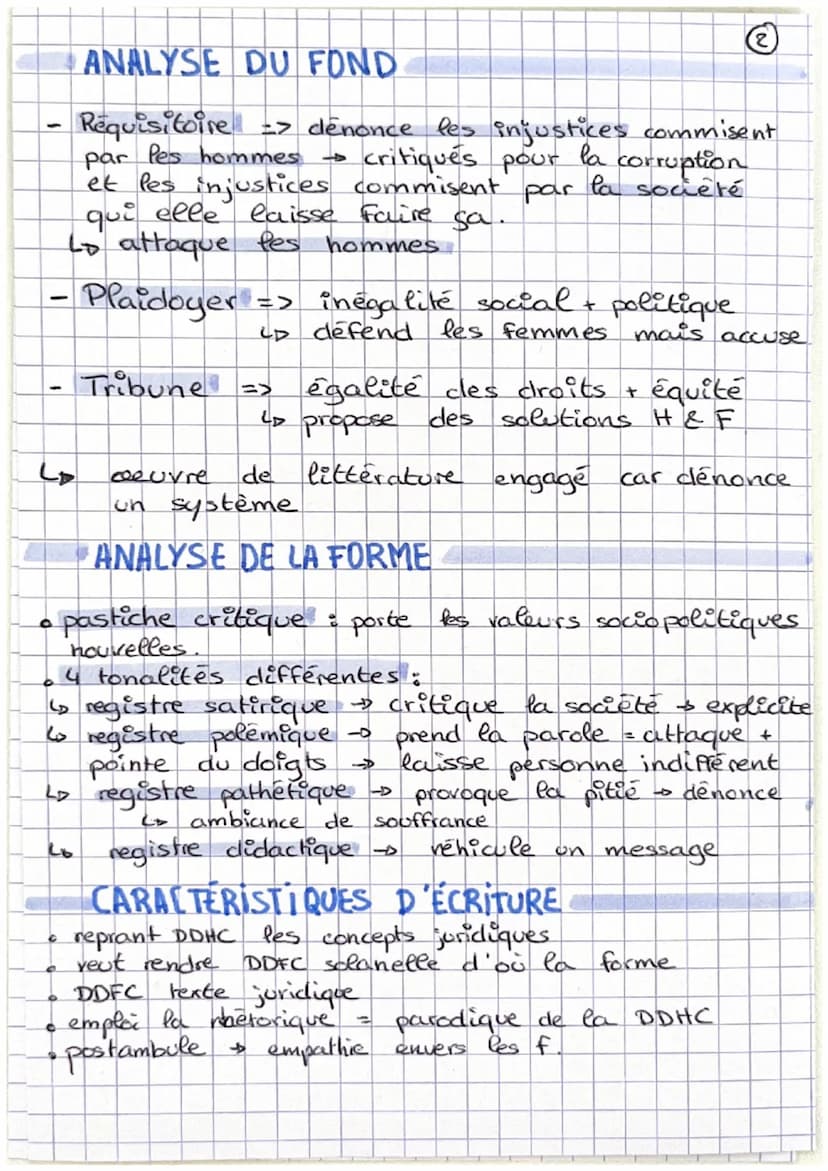 2
ANALYSE DU FOND
- Réquisitoire => dénonce les injustices commisent
par les hommes → critiqués pour la corruption
et les injustices commisent par la société
qui elle laisse faire sa.
↳ attaque les hommes
- Plaidoyer => inégalité social + politique
↳ défend les femmes mais accuse
- Tribune => égalité des droits + équité
↳ propose des solutions H & F
↳ oeuvre de littérature engagé car dénonce
un système
ANALYSE DE LA FORME
• pastiche critique : porte les valeurs sociopolitiques
nouvelles.
• 4 tonalités différentes :
↳ registre satirique → critique la société → explicite
↳ registre polémique → prend la parole = attaque +
pointe du doigts → laisse personne indifférent
↳ registre pathétique → provoque la pitié → dénonce
↳ ambiance de souffrance
↳ registre didactique → véhicule un message
CARACTÉRISTIQUES D'ÉCRITURE
• reprant DDHC les concepts juridiques
• veut rendre DDFC solanelle d'où la forme
• DDFC texte juridique
• emploi la rhétorique = parodique de la DDHC
• postambule → empathie envers les f.